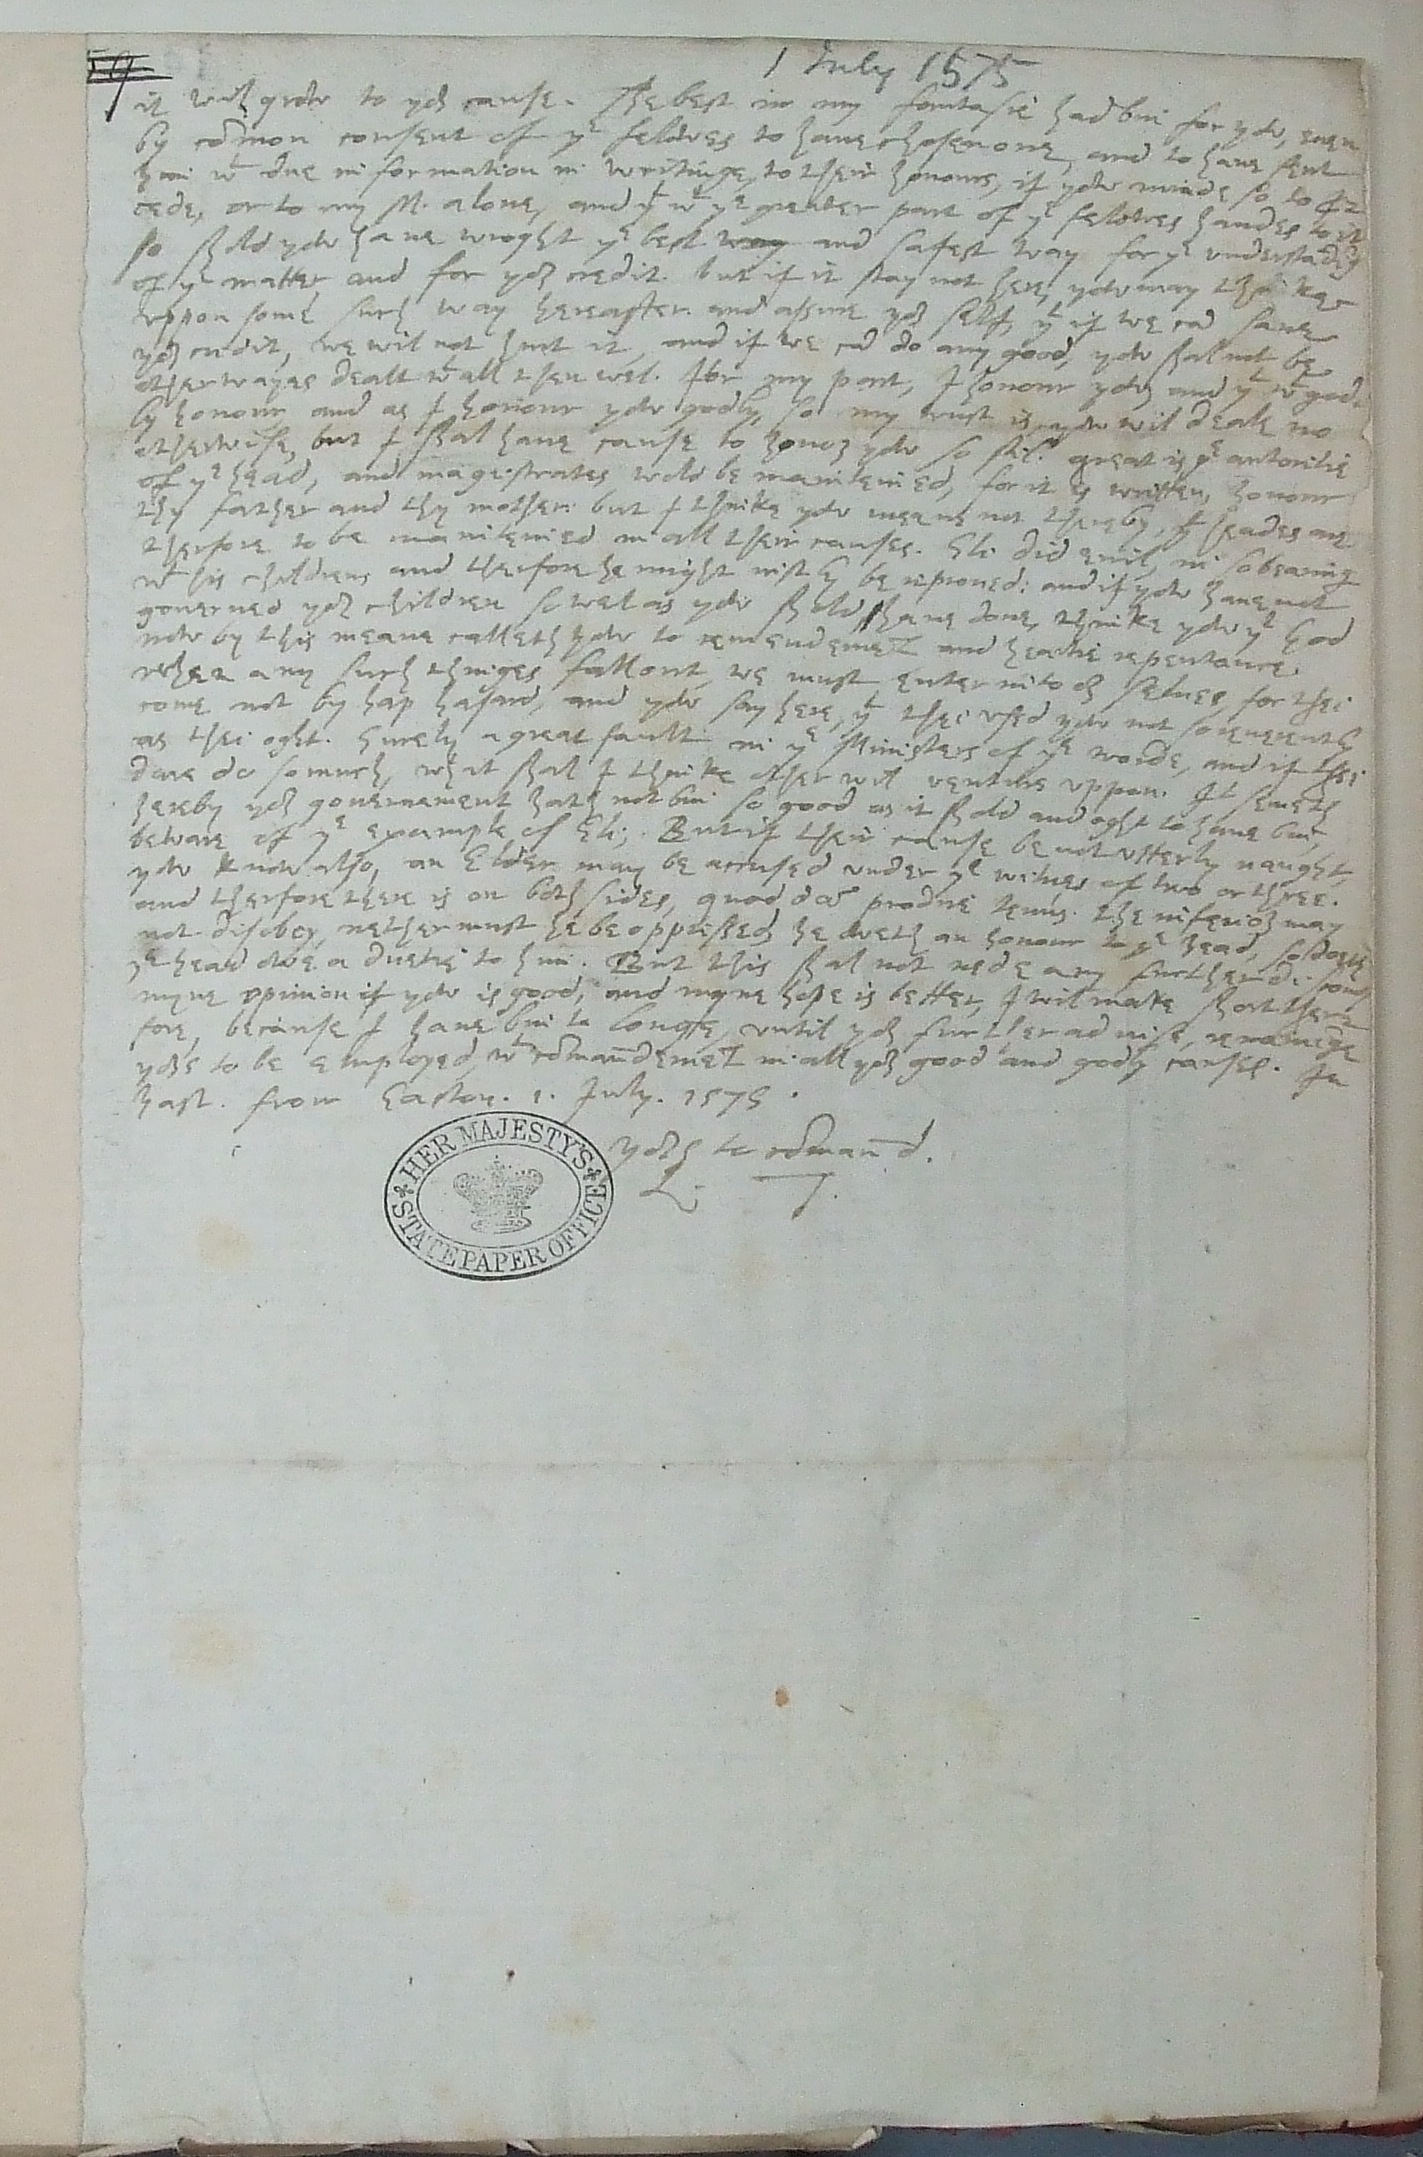 59
1 July 1575
it wch grow to yor cause. The best in my fantasie had bin for yow, euen
by comon consent of ye felowes to haue chosen one, and to haue sent
him wt due information in writinge, to their honours, if yow minde so to pro
cede, or to my M. alone, and yt wt ye greater part of ye felowes handes to it
so shold yow haue wroght ye best way and safest way for ye understading
of ye matter and for yor credit. but if it stay not here, yow may thinke
uppon some such way hereafter. and assure yor self, yt if we ca saue
yor credit, we wil not hurt it, and if we ca do any good, yow shal not be
otherwayes dealt wt all then wel. For my part, I honour yow and yt wt god
ly honour and as I honour yow godly, so my trust is, yow wil deale no
otherwise, but I shal haue cause to honor yow so stil. great is ye autoritie
of ye head, and magistrates wold be mainteined, for it is written, honour
thy father and thy mother: but I thinke yow meane not thereby, yt heades are
therfore to be mainteined in all their causes. Eli did euil, in so bearing
wt his children and therfore he might iustly be reproued: and if yow haue not
gouerned yor children so wel as yow shold haue done, thinke yow yt God
now by this meane calleth yow to amendemet and heartie repentance.
when any such thinges fall out, we must enter into or selues, for thei
come not by hap hasard, and yow say here, yt thei used yow not so reuerently
as thei oght. Surely a great fault in ye Ministers of ye worde, and if thei
dare do so much, what shal I thinke other wil venture uppon. It semeth
hereby yor gouernement hath not bin so good as it shold and oght to haue bin,
beware of ye example of Eli; But if their cause be not utterly naught,
yow know also, an Elder may be accused under ye witnes of two or three.
and therfore there is on both sides, quod prodire tenus. the inferior may
not disobey, nether must he be oppressed, he oweth an honour to ye head, so doeth
ye head owe a duetie to him. But this shal not nede any further discours
myne opinion if yow is good, and myne hope is better, I wil make short there
fore, because I haue bin to longe, until yor further aduise, remaininge
yors to be employed, wt comaundemet in all yor good and godly causes. In
hast. from Easton. 1. July. 1575.
yors to comaund.
L. T.
HER MAJESTY'S STATE PAPER OFFICE